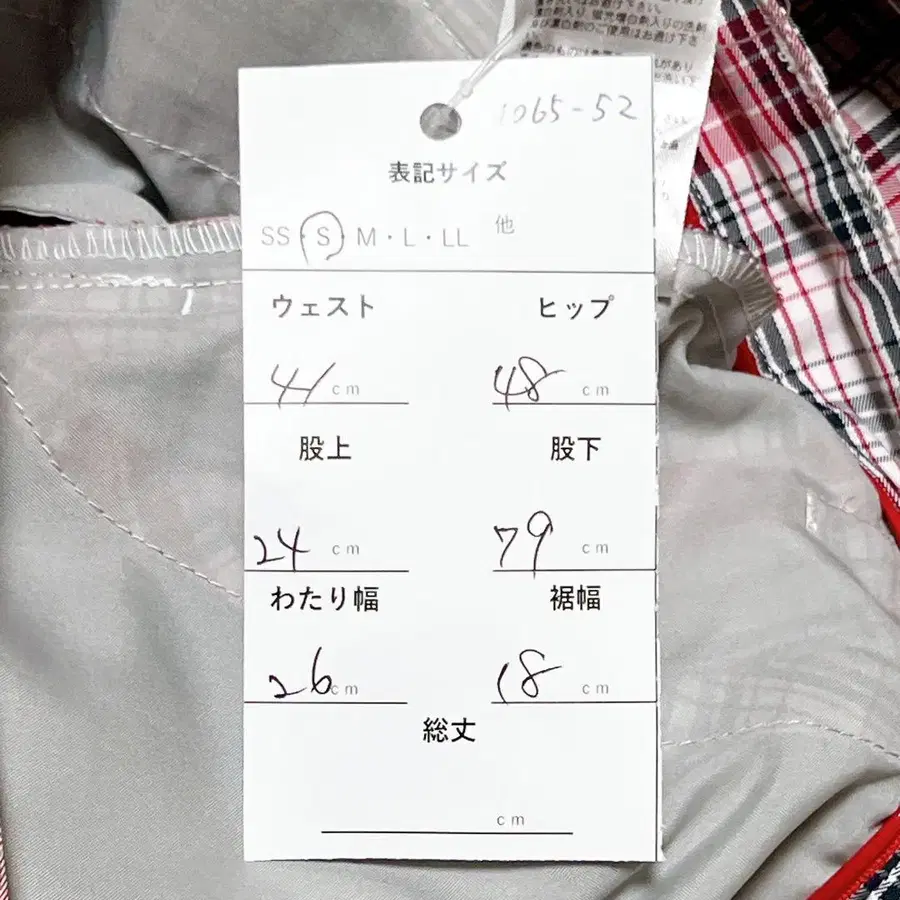 1065-52
表記サイズ
SS・S・M・L・LL 他
ウェスト ヒップ
41 cm 48 cm
股上 股下
24 cm 79 cm
わたり幅 裾幅
26 cm 18 cm
総丈
cm